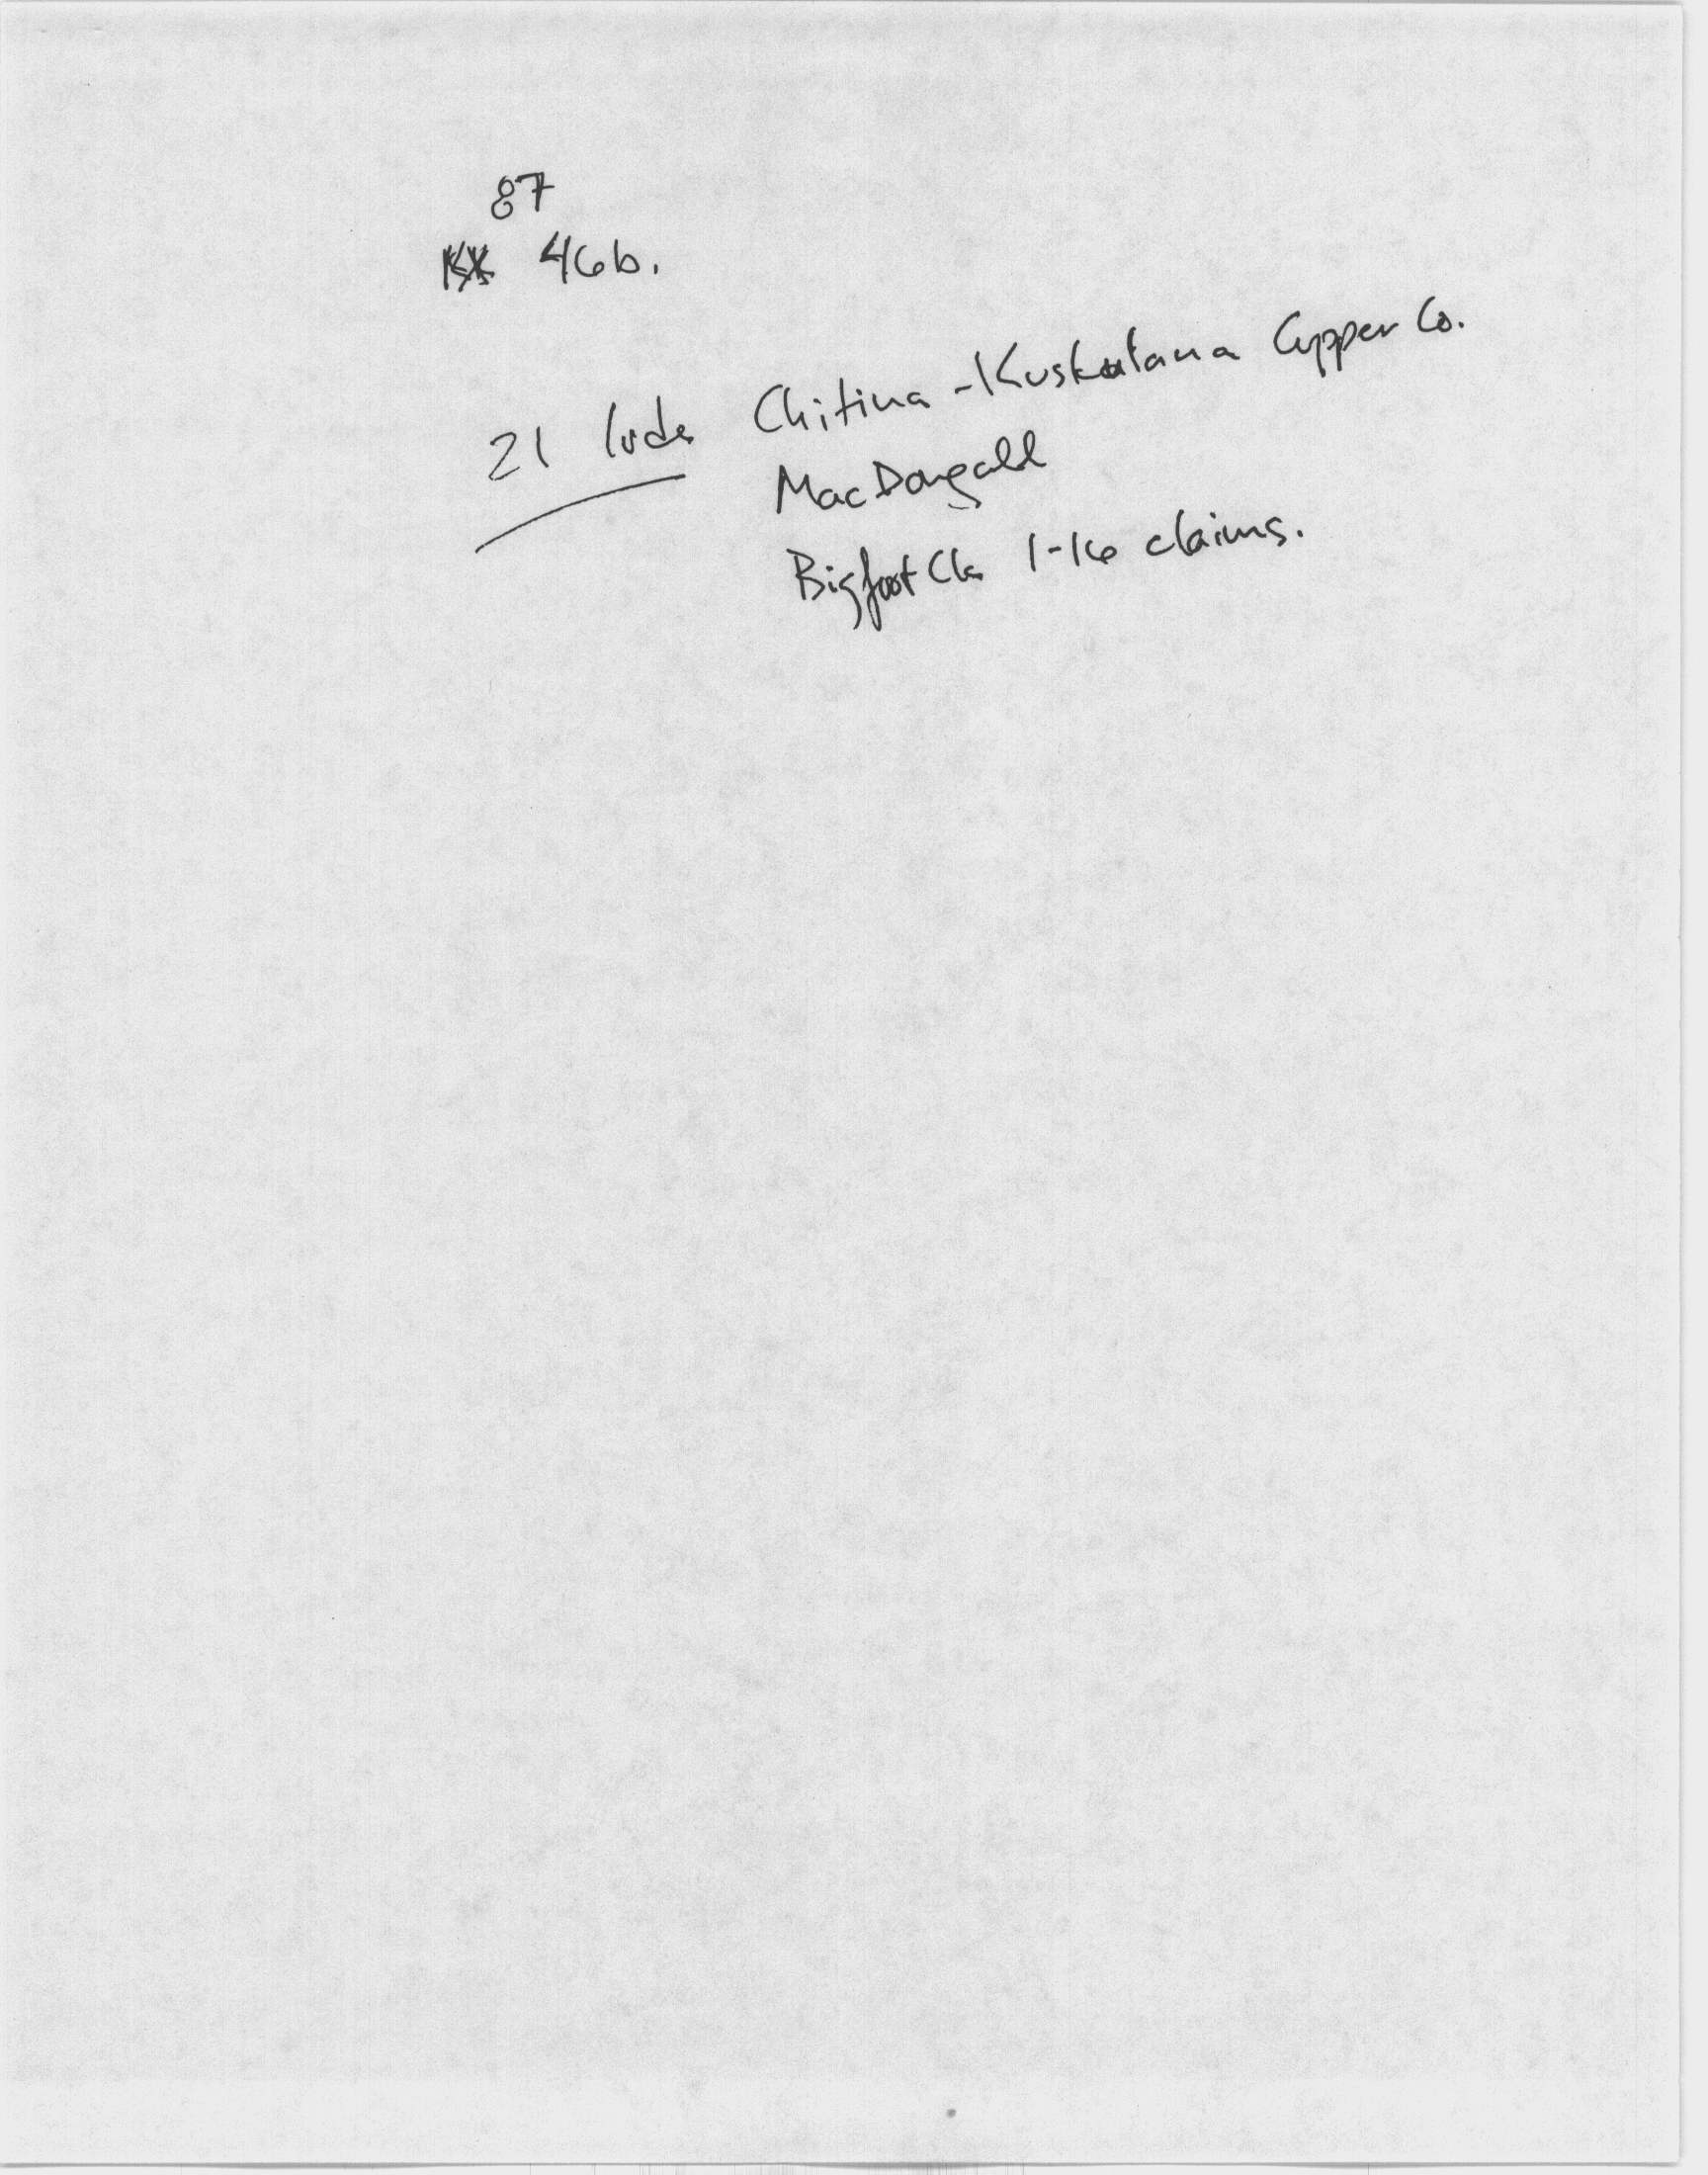 87
KX 46b.
21 lode Chitina-Kuskulana Copper Co.
MacDougall
Bigfoot Ck 1-16 claims.